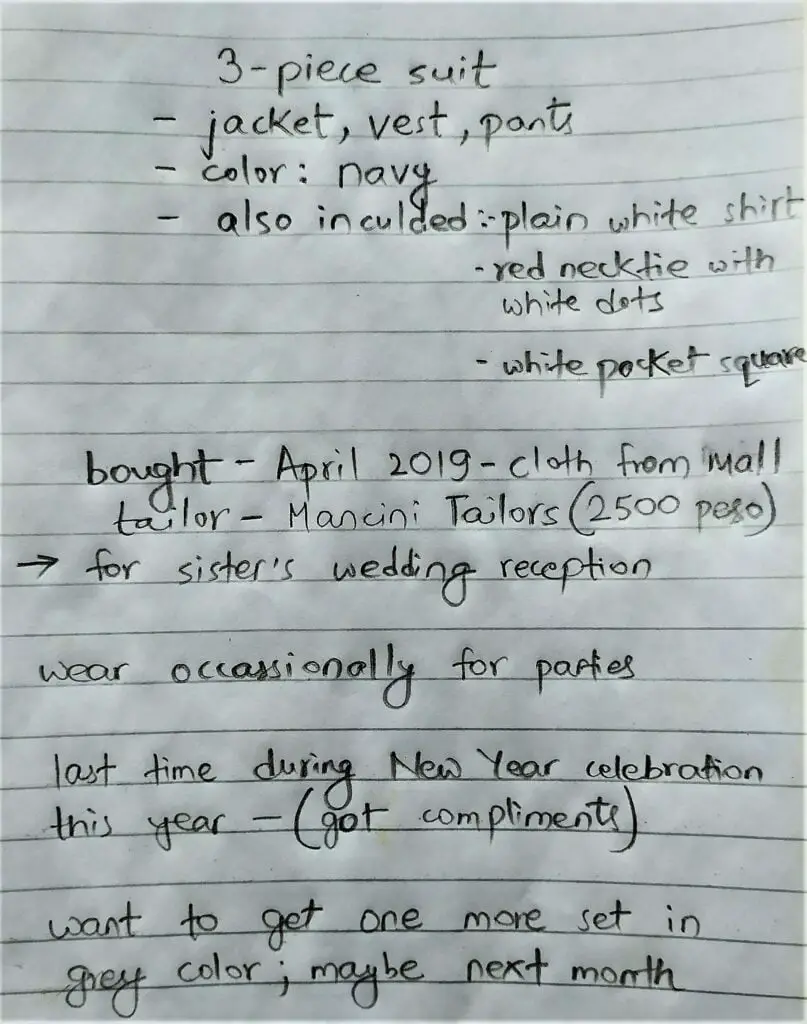 3-piece suit
- jacket, vest, pants
- color: navy
- also inculded :- plain white shirt
- red necktie with
white dots
- white pocket square
bought - April 2019 - cloth from mall
tailor - Mancini Tailors (2500 peso)
→ for sister's wedding reception
wear occassionally for parties
last time during New Year celebration
this year - (got compliments)
want to get one more set in
grey color; maybe next month